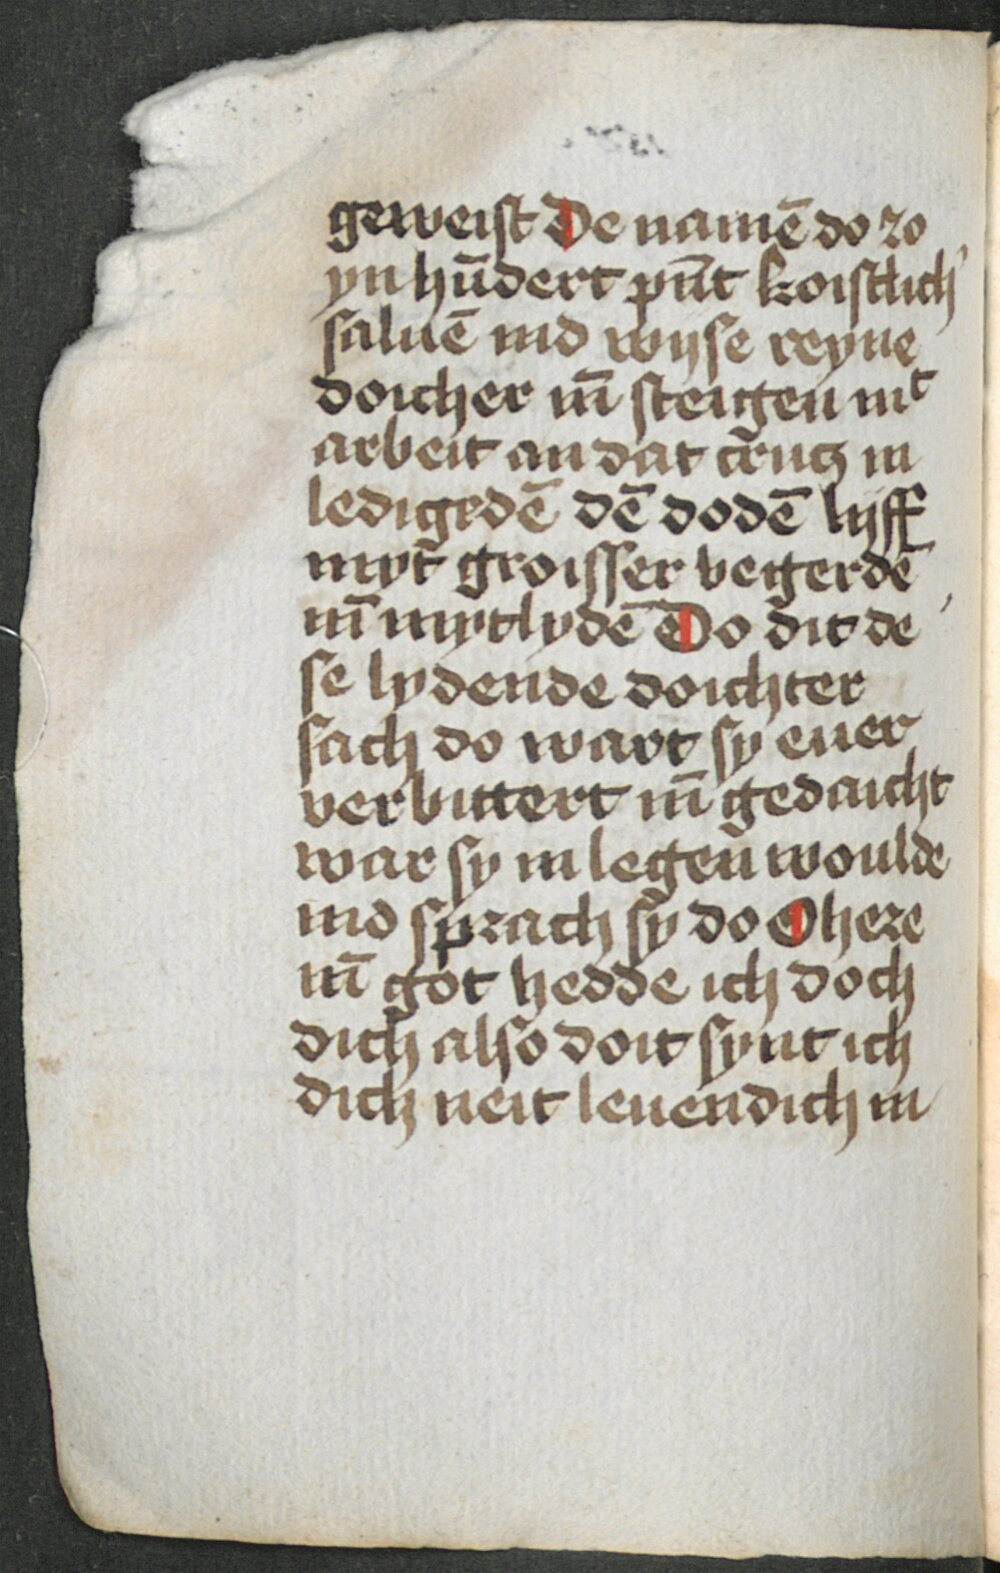 geweist De namē do zo
yn hūdert pūt koistlich'
saluē ind wyse reyne
doicher iñ steigen mt
arbeit an dat crutz in
ledigedē dē dodē lijff
myt groisser begerdē
iñ mytlydē Do dit de
se lydende doichter
sach do wart sy euer
verbittert iñ gedaicht
war sy in legen woulde
ind sprach sy do O here
iñ got hedde ich doch
dich also doit synt ich
dich neit leuendich in